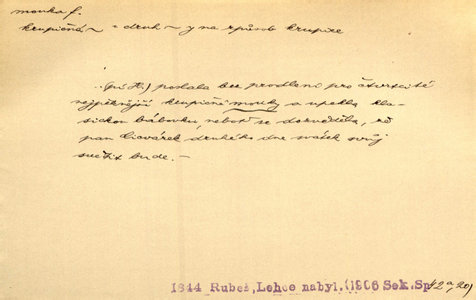 mouka f.
krupičná = druh ~y na způsob krupice
poslala bez prodlení pro čtvrtcitě
nejpěknější krupičné mouky a upekla kla-
sickou bábovku, neboť se dozvěděla, že
pan Civárek druhého dne svátek svůj
světit bude. –
1844 Rubeš, Lehce nabyl. (1906 Sek. Sp. 42a,20)